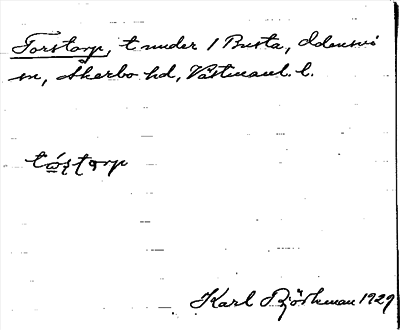 Torstorp, t under 1 Busta, Odensvi
sn, Åkerbo hd, Västmanl. l.
tɷ́ʂʈɒrp
Karl Björkman 1929